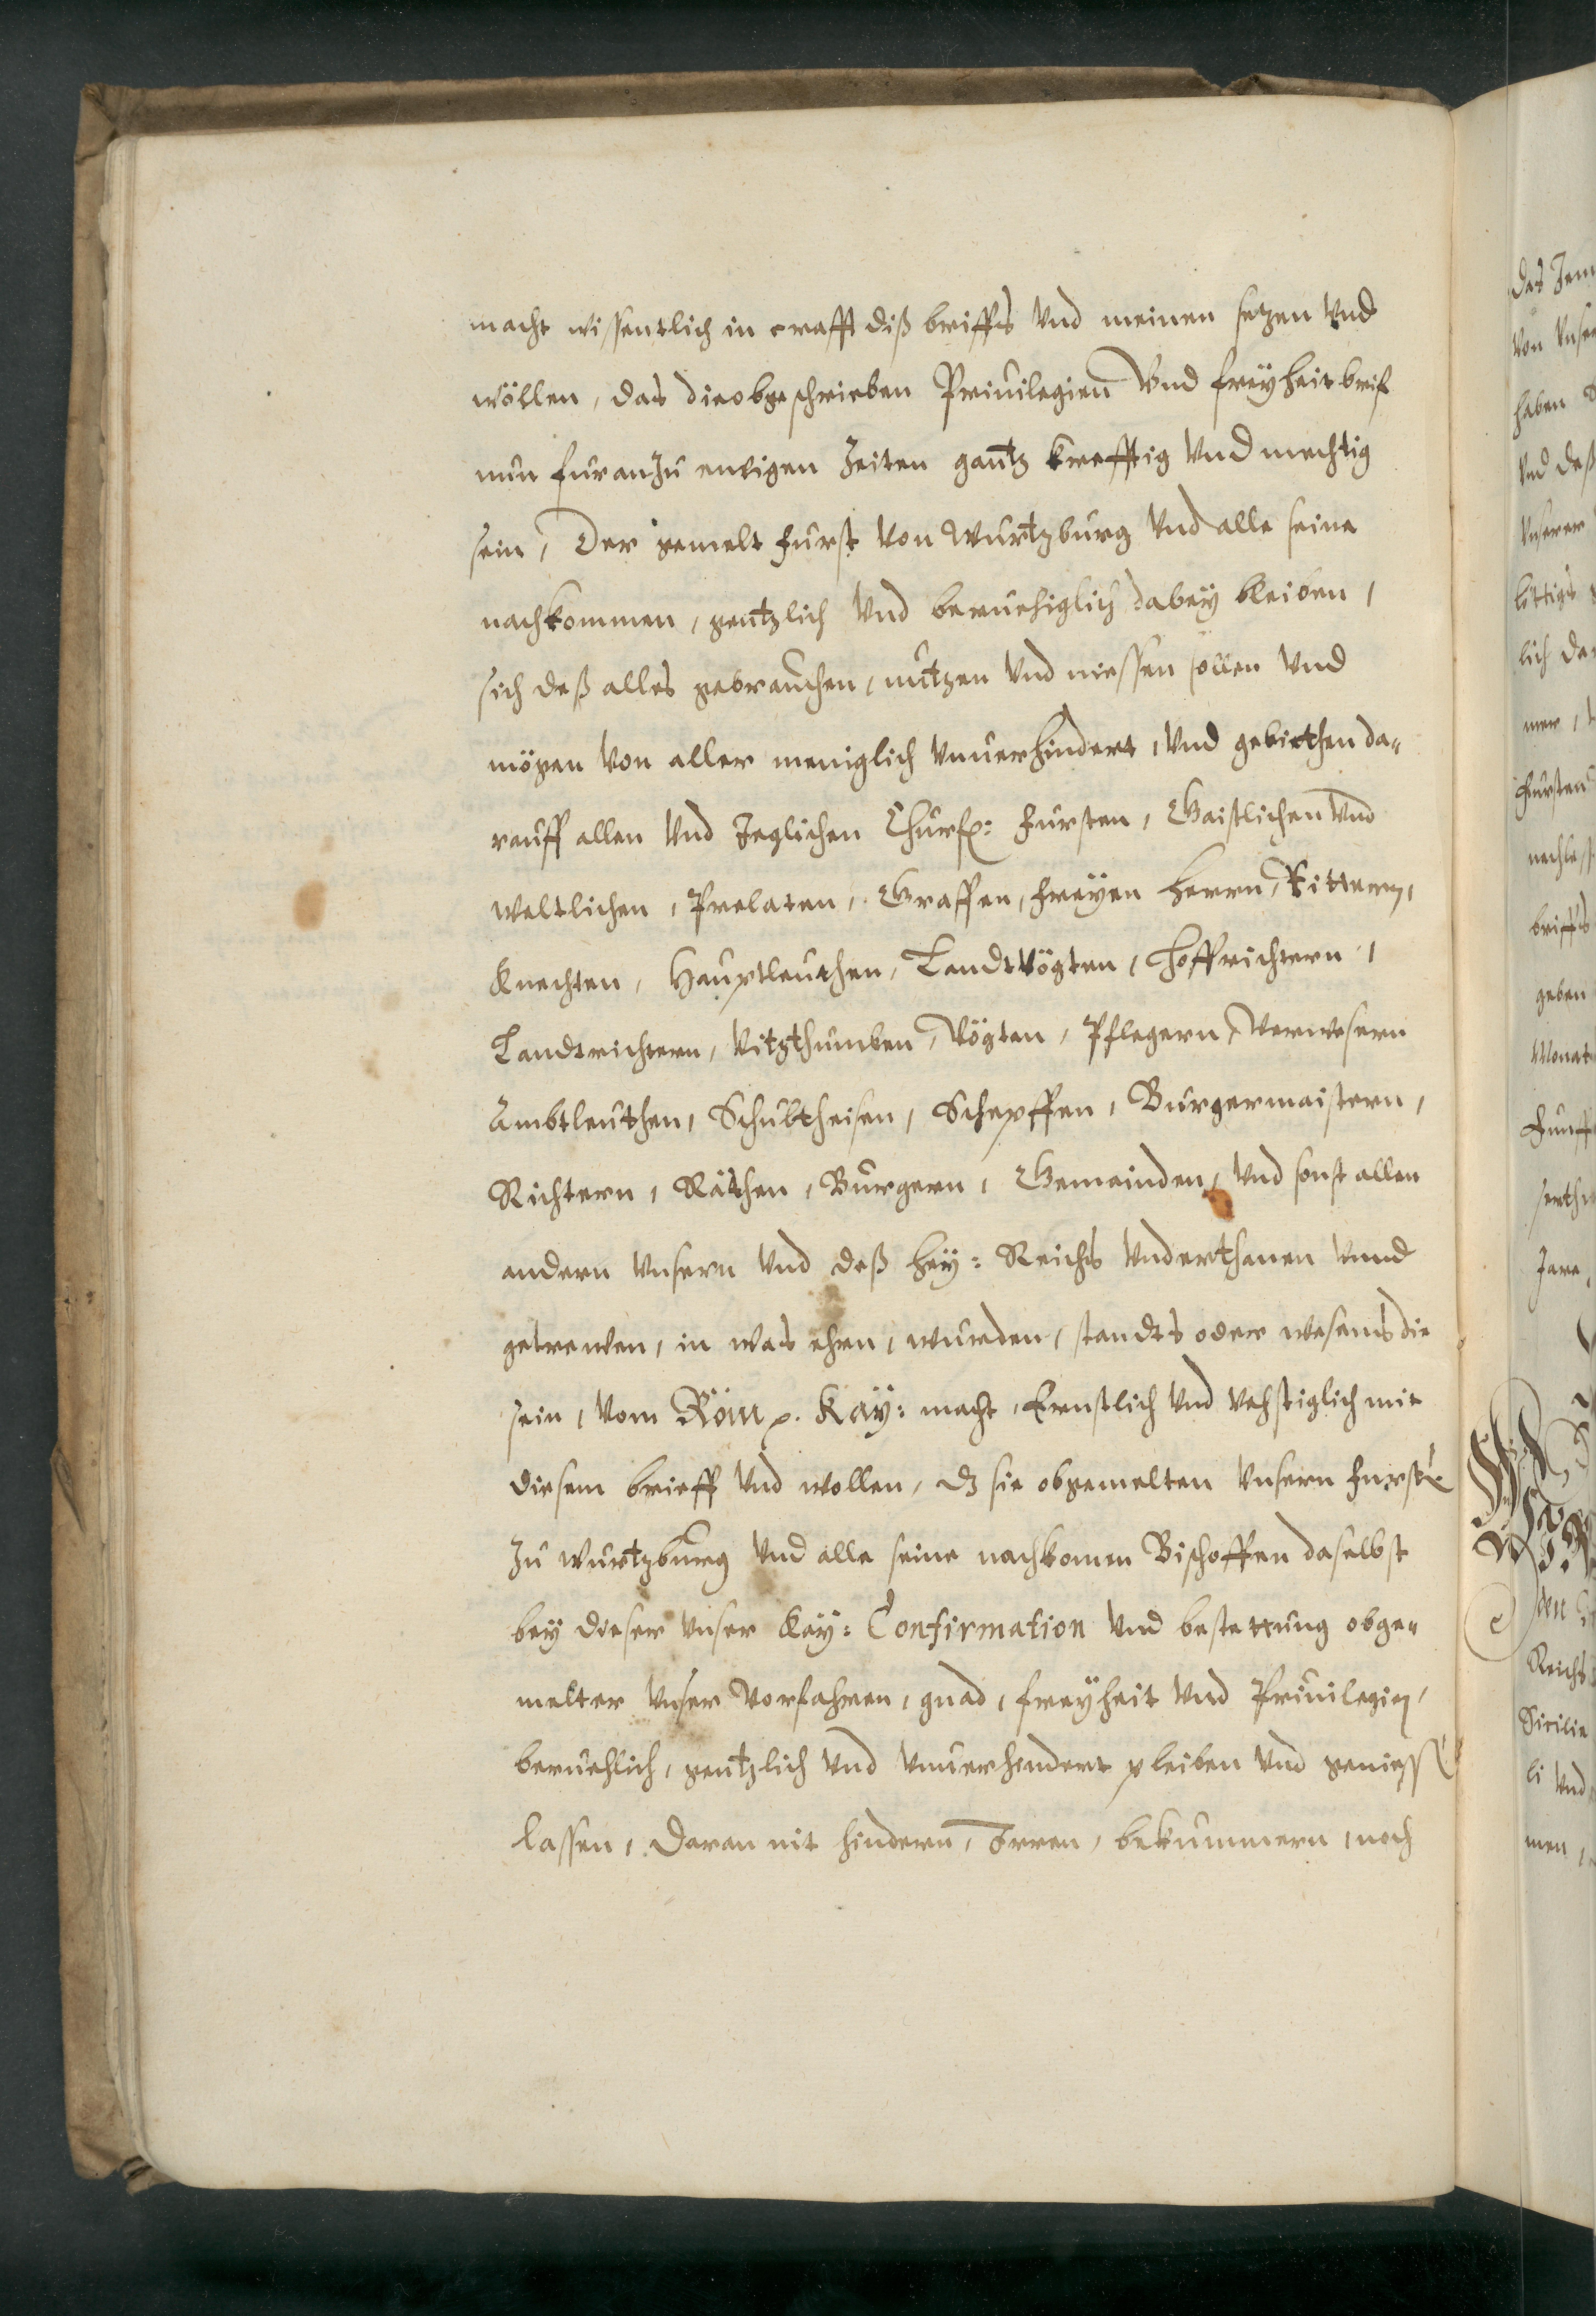 macht wissentlich in crafft diß brieffs vnd meinen setzen vnd
wöllen, das die obgeschrieben Priuilegien vnd freyheit brief
nun furan zu ewigen Zeiten gantz krefftig vnd mechtig
sein, Der gemelt Furst von Wurtzburg vnd alle seine
nachkommen, gentzlich vnd beruehiglich dabey bleiben,
sich deß alles gebrauchen, nutzen vnd niessen sollen vnd
mögen von aller meniglich vnuerhindert, vnd gebiethen da„
rauff allen vnd Jeglichen Churf: Fursten, Gaistlichen vnd
weltlichen, Prelaten, Graffen, Freyen Herrn, Rittern,
Knechten, Hauptleuthen, Landtvögten, Hoffrichtern,
Landtrichtern, Vitzthumben, Vögten, Pflegern, Verwesern
Ambtleuthen, Schultheisen, Schepffen, Burgermaistern,
Richtern, Räthen, Burgern, Gemainden, vnd sonst allen
andern vnsern vnd deß hey: Reichs vnderthanen vnnd
getrewen, in was ehrn, wurden, standts oder wesens die
sein, vom Röm. Kay: macht, Ernstlich vnd vehstiglich mit
diesem brieff vnd wollen, dz sie obgemelten vnsern Furstē
zu Wurtzburg vnd alle seine nachkomen Bischoffen daselbst
bey dieser vnser Kay: Confirmation vnd bestettung obge„
melter vnser Vorfahren, gnad, freyheit vnd Priuilegien,
beruehlich, gentzlich vnd vnuerhindert pleiben vnd geniessē
lassen, Daran nit hindern, Irren, bekummern, noch